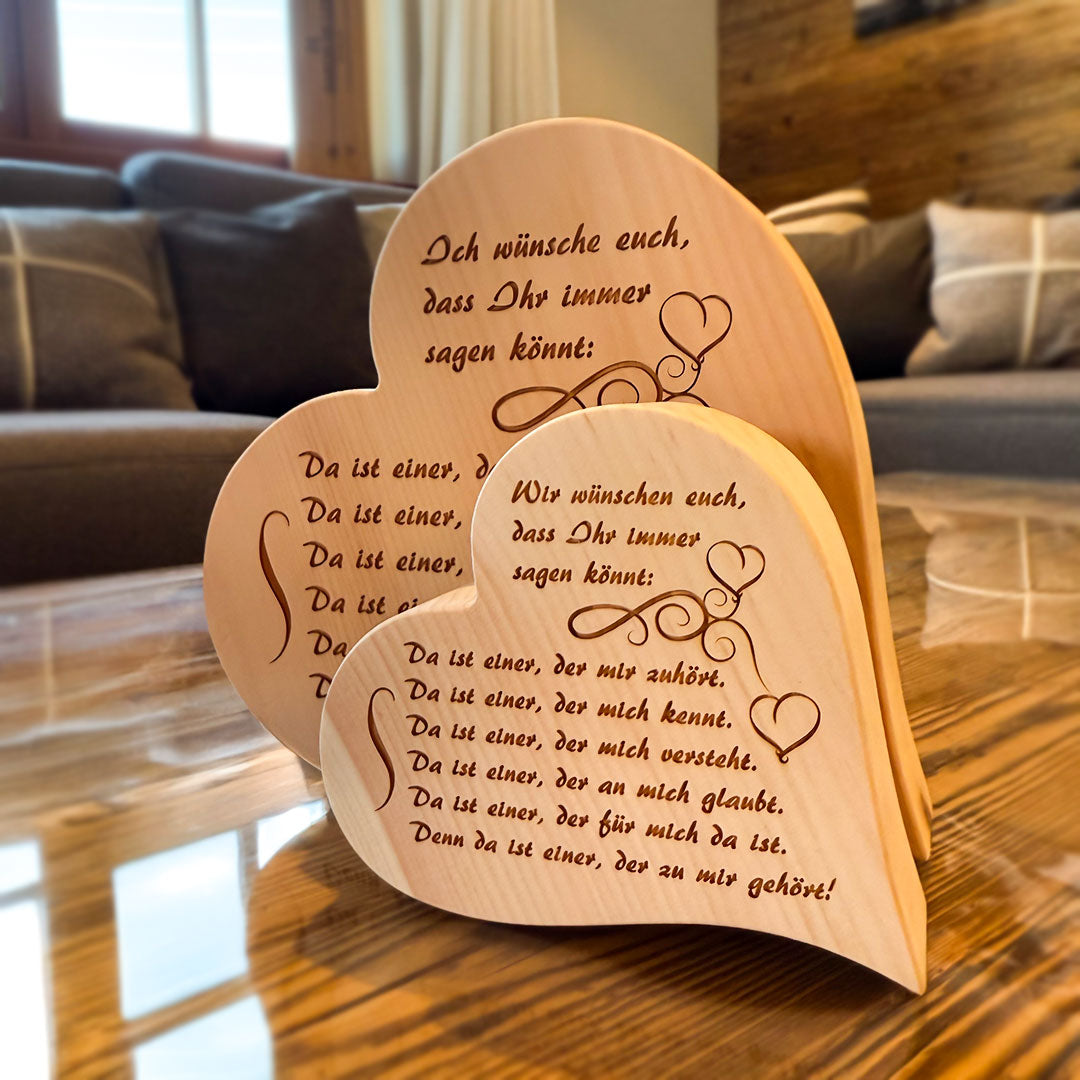 Ich wünsche euch,
dass Ihr immer
sagen könnt:
Da ist einer,
Da ist einer,
Da ist einer,
Da ist
Da
Wir wünschen euch,
dass Ihr immer
sagen könnt:
Da ist einer, der mir zuhört.
Da ist einer, der mich kennt.
Da ist einer, der mich versteht.
Da ist einer, der an mich glaubt.
Da ist einer, der für mich da ist.
Denn da ist einer, der zu mir gehört!